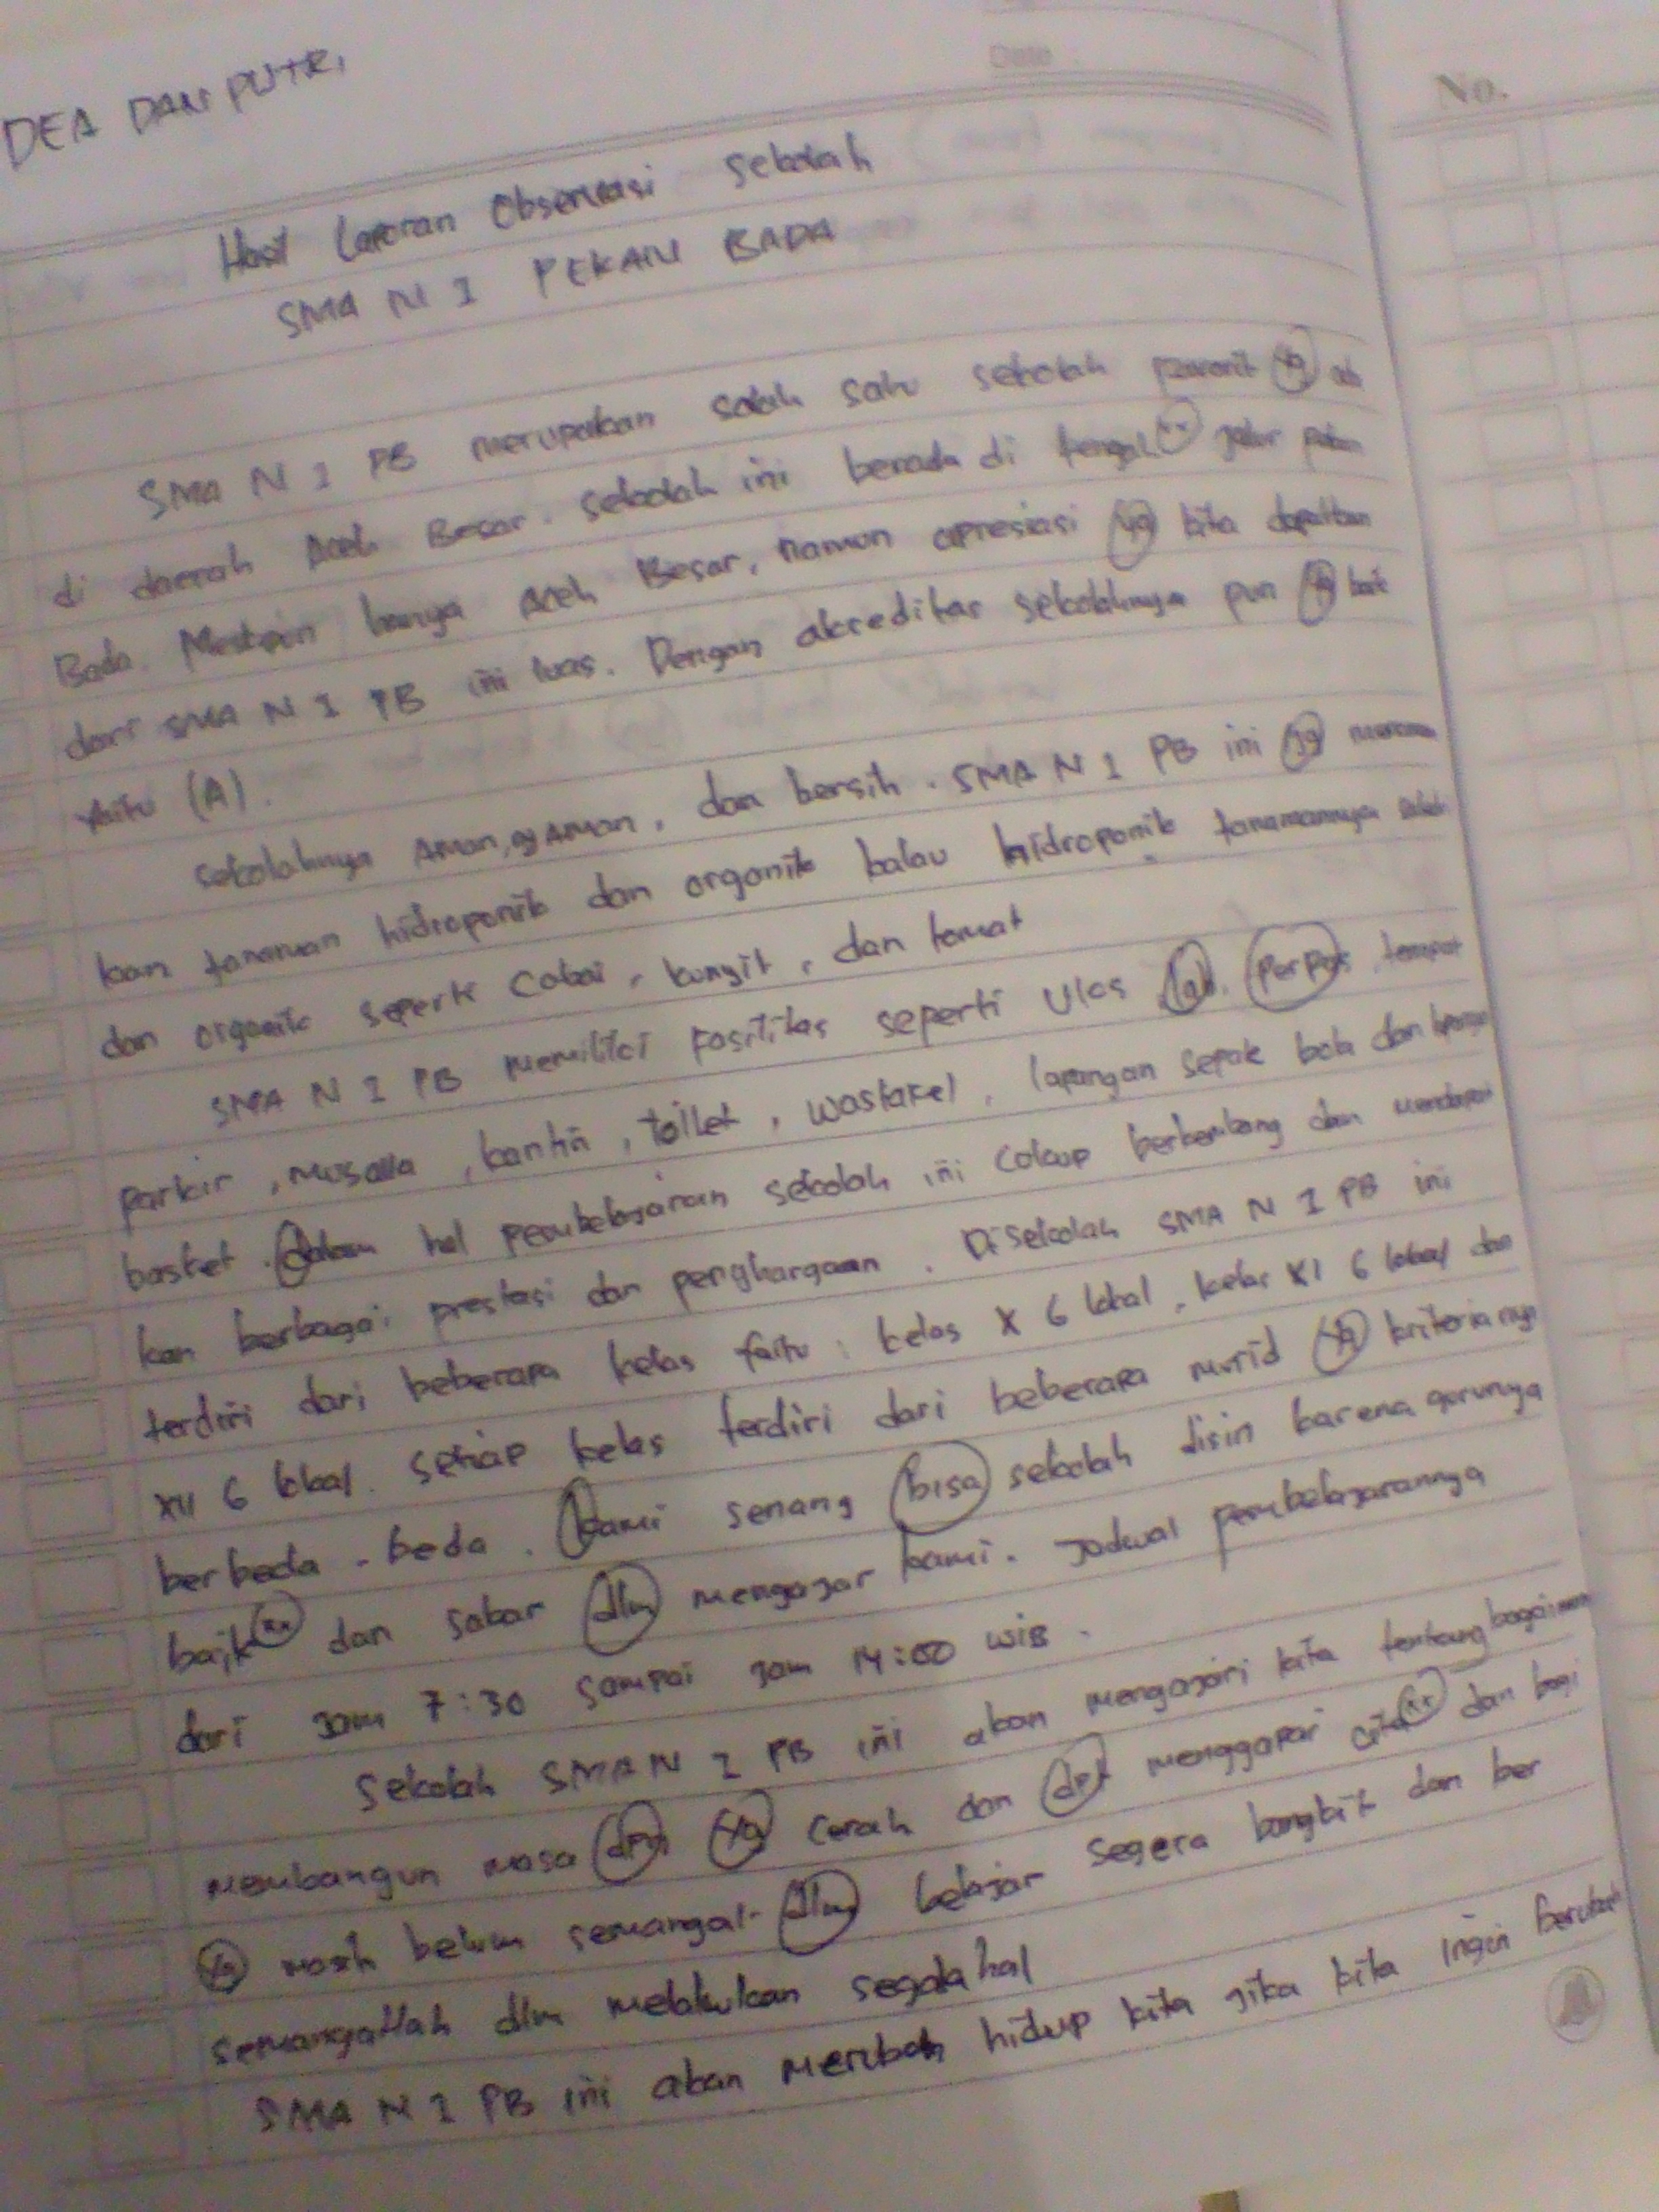 DEA DAN PUTRI
Date
No.
Hasil Laporan Observasi Sekolah
SMA N 1 PEKAN BADA
SMA N 1 PB merupakan salah satu sekolah Favorit yg
di daerah Aceh Besar. sekolah ini berada di tengah" jalur
Bada. Meskipun hanya Aceh Besar, namun apresiasi yg kita dapatkan
dari SMA N 1 PB ini luas. Dengan akreditas sekolahnya pun yg baik
yaitu (A).
Sekolahnya Aman, nyaman, dan bersih. SMA N 1 PB ini jg
kan tanaman hidroponik dan organik kalau hidroponik tanamannya
dan organik seperti Cabai, kunyit, dan tomat
SMA N 1 PB memiliki Fasilitas seperti UKS, lab, Perpus, tempat
parkir, musalla, kantin, toilet, wastafel, lapangan sepak bola dan
basket. dalam hal pembelajaran sekolah ini cukup berkembang dan mendapat
kan berbagai prestasi dan penghargaan. Disekolah SMA N 1 PB ini
terdiri dari beberapa kelas faitu: kelas X 6 lokal, kelas XI 6 lokal dan
XII 6 lokal. setiap kelas terdiri dari beberapa murid yg kriterianya
berbeda-beda. kami senang bisa sekolah disin karena gurunya
baik" dan sabar dlm mengajar kami. Jadwal pembelajarannya
dari jam 7:30 sampai jam 14:00 WIB.
Sekolah SMA N 1 PB ini akan mengajari kita tentang bagaimana
membangun masa dpn yg cerah dan dpt menggapai cita" dan bagi
yg masih belum semangat dlm belajar segera bangkit dan ber
semangatlah dlm melakukan segala hal
SMA N 1 PB ini akan merubah hidup kita jika kita ingin berubah